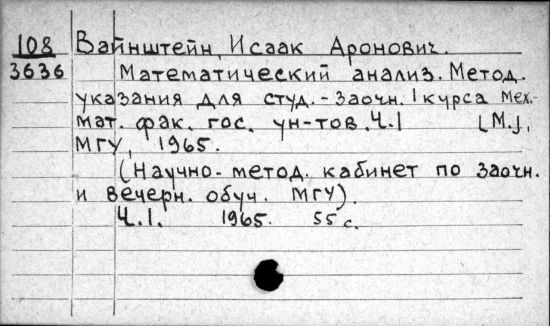 108 Вайнштейн, Исаак Аронович.
3636 Математический анализ. Метод.
указания для студ.-заочн. I курса мех.-
мат. фак. гос. ун-тов. Ч.I [М.],
МГУ, 1965.
(Научно-метод. кабинет по заочн.
и вечерн. обуч. МГУ).
Ч.I. 1965. 55 с.